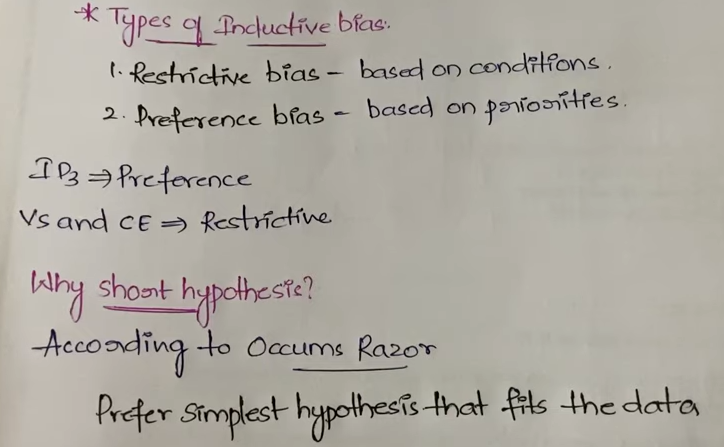 * Types of Inductive bias:
1. Restrictive bias - based on conditions.
2. Preference bias - based on priorities.
ID3 ⇒ Preference
VS and CE ⇒ Restrictive
Why short hypothesis?
According to Occums Razor
Prefer simplest hypothesis that fits the data